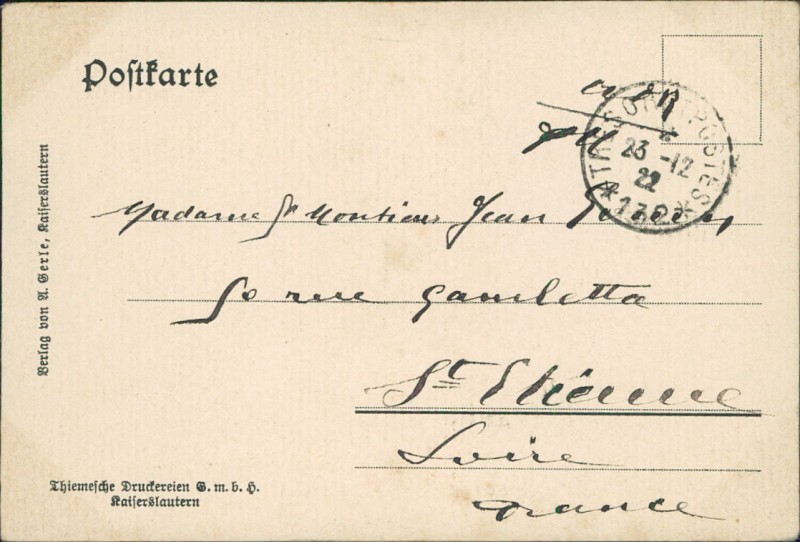 Postkarte
TRESOR ET POSTES
23 - 12
22
Madame & Monsieur Jean
50 rue Gambetta
St Etienne
Loire
France
Verlag von A. Gerle, Kaiserslautern
Thiemesche Druckereien G. m. b. H.
Kaiserslautern